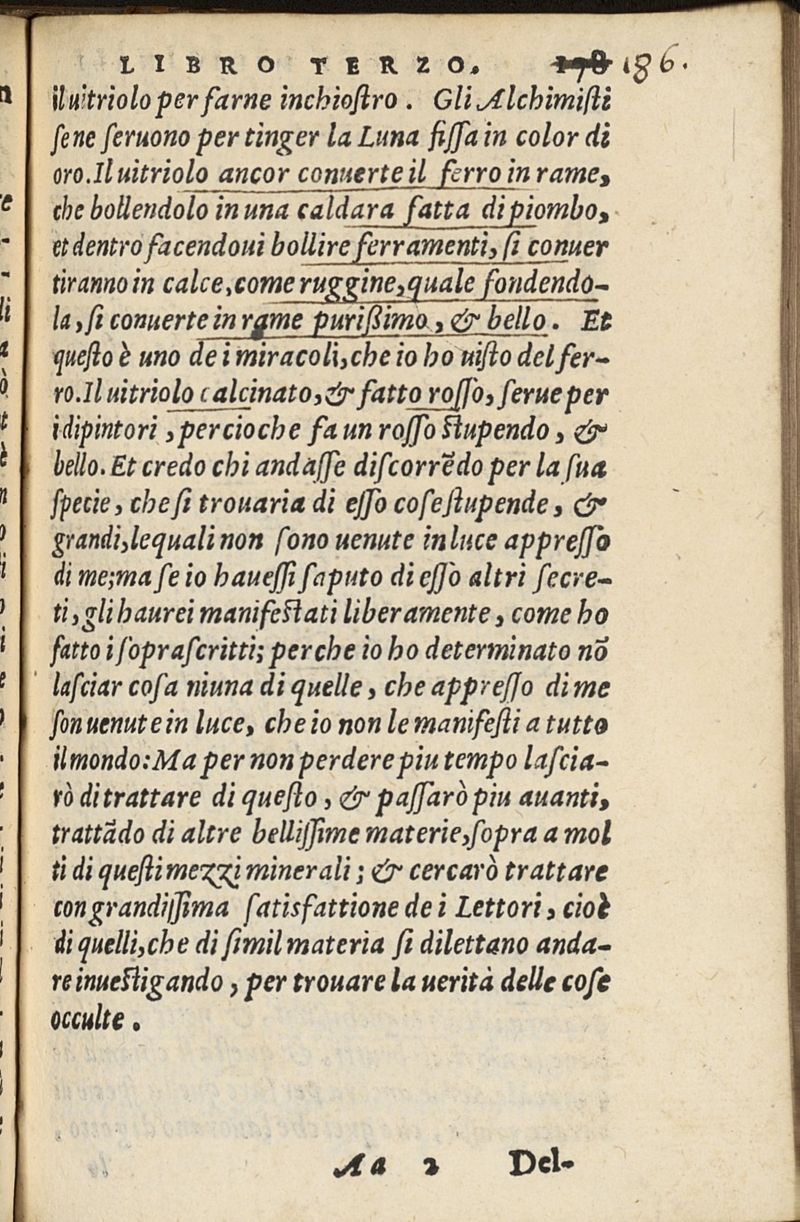 LIBRO TERZO. 178 186.
il uitriolo per farne inchioſtro. Gli Alchimiſti
ſene ſeruono per tinger la Luna fiſſa in color di
oro. Il uitriolo ancor conuerte il ferro in rame,
che bollendolo in una caldara fatta di piombo,
et dentro facendoui bollire ferramenti, ſi conuer
tiranno in calce, come ruggine, quale fondendo-
la, ſi conuerte in rame purißimo, & bello. Et
queſto è uno de i miracoli, che io ho uiſto del fer-
ro. Il uitriolo calcinato, & fatto roſſo, ſerue per
i dipintori, percioche fa un roſſo ſtupendo, &
bello. Et credo chi andaſſe diſcorrẽdo per la ſua
ſpecie, che ſi trouaria di eſſo coſe ſtupende, &
grandi, lequali non ſono uenute in luce appreſſo
di me; ma ſe io haueſſi ſaputo di eſſo altri ſecre-
ti, gli haurei manifeſtati liberamente, come ho
fatto i ſopraſcritti; perche io ho determinato nõ
laſciar coſa niuna di quelle, che appreſſo di me
ſon uenute in luce, che io non le manifeſti a tutto
il mondo: Ma per non perdere piu tempo laſcia-
rò di trattare di queſto, & paſſarò piu auanti,
trattãdo di altre belliſſime materie, ſopra a mol
ti di queſti mezzi minerali; & cercarò trattare
con grandiſſima ſatisfattione de i Lettori, cioè
di quelli, che di ſimil materia ſi dilettano anda-
re inueſtigando, per trouare la uerità delle coſe
occulte.
Aa 2 Del-